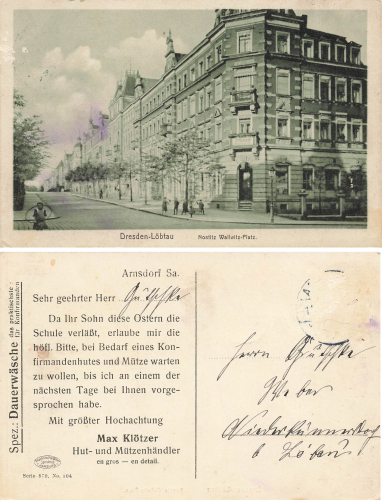 Dresden-Löbtau
Nostitz Wallwitz-Platz.
Spez.: Dauerwäsche das praktischste für Konfirmanden
Arnsdorf Sa.
Sehr geehrter Herr Gutschke
Da Ihr Sohn diese Ostern die
Schule verläßt, erlaube mir die
höfl. Bitte, bei Bedarf eines Kon-
firmandenhutes und Mütze warten
zu wollen, bis ich an einem der
nächsten Tage bei Ihnen vorge-
sprochen habe.
Mit größter Hochachtung
Max Klötzer
Hut- und Mützenhändler
en gros — en detail.
Serie 678, No. 104
Herrn Gutschke
Weber
b Löbau